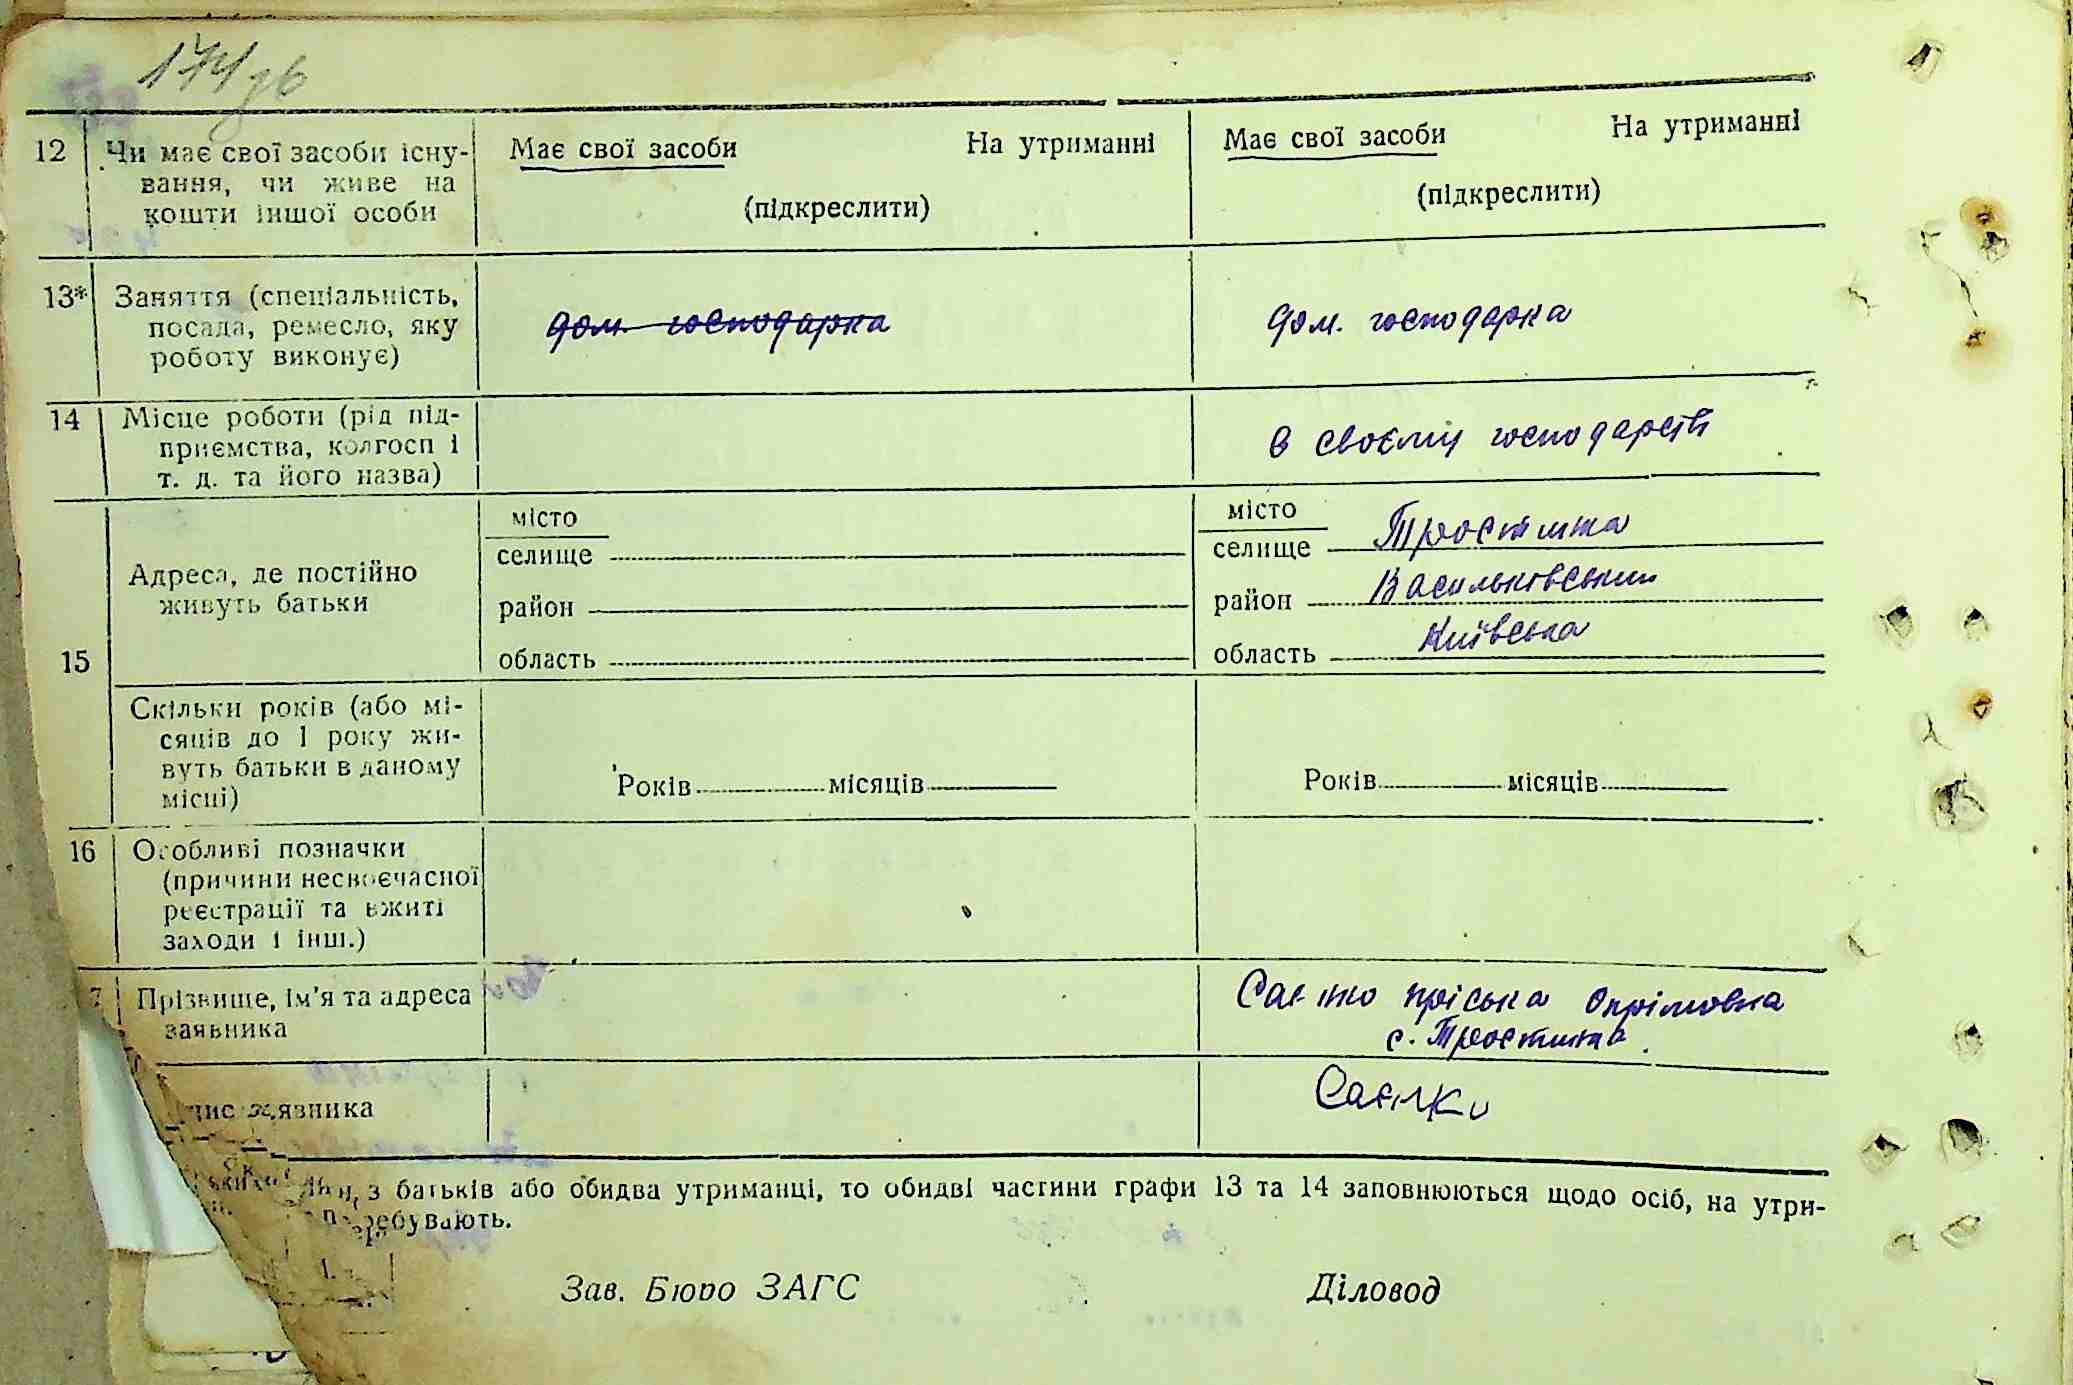 174зв
12 Чи має свої засоби існу-
вання, чи живе на
кошти іншої особи
Має свої засоби На утриманні
(підкреслити)
Має свої засоби На утриманні
(підкреслити)
13* Заняття (спеціальність,
посада, ремесло, яку
роботу виконує)
дом. господарка
дом. господарка
14 Місце роботи (рід під-
приємства, колгосп і
т. д. та його назва)
в своєму господарстві
15
Адреса, де постійно
живуть батьки
місто
селище
район
область
місто
селище Тростинка
район Васильківський
область Київська
Скільки років (або мі-
сяців до 1 року жи-
вуть батьки в даному
місці)
Років місяців
Років місяців
16 Особливі позначки
(причини несвоєчасної
реєстрації та вжиті
заходи і інш.)
7 Прізвище, ім'я та адреса
заявника
Саєнко Пріська Опрімовна
с. Тростинка
пис заявника
Саєнко
з батьків або обидва утриманці, то обидві частини графи 13 та 14 заповнюються щодо осіб, на утри-
перебувають.
Зав. Бюро ЗАГС Діловод